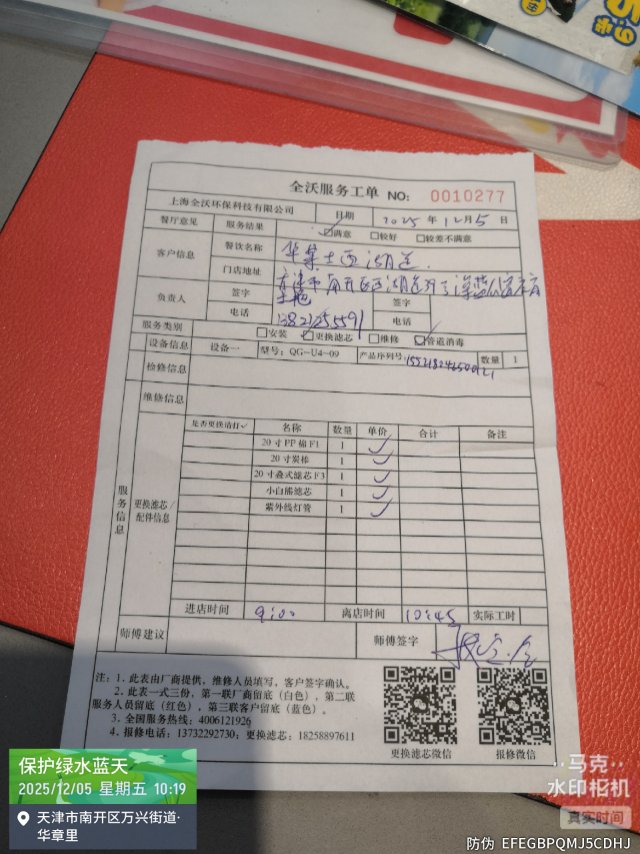 全沃服务工单 NO: 0010277
上海全沃环保科技有限公司 日期 2025年12月5日
餐厅意见 服务结果 ☑满意 □较好 □较差不满意
客户信息 餐饮名称 华莱士西湖道
门店地址 天津市南开区西湖道
负责人 签字 签字
电话 电话
服务类别 □安装 ☑更换滤芯 □维修 ☑管道消毒
设备信息 设备一 型号: QG-U4-09 产品序列号: 数量 1
检修信息
维修信息
服务信息
更换滤芯/配件信息
是否更换请打✓ 名称 数量 单价 合计 备注
20寸PP棉F1 1 ✓
20寸炭棒 1 ✓
20寸叠式滤芯F3 1 ✓
小白熊滤芯 1 ✓
紫外线灯管 1 ✓
进店时间 9:00 离店时间 10:45 实际工时
师傅建议 师傅签字
注: 1. 此表由厂商提供, 维修人员填写, 客户签字确认。
2. 此表一式三份, 第一联厂商留底(白色), 第二联
服务人员留底(红色), 第三联客户留底(蓝色)。
3. 全国服务热线: 4006121926
4. 报修电话: 13732292730; 更换滤芯: 18258897611
更换滤芯微信 报修微信
保护绿水蓝天
2025/12/05 星期五 10:19
天津市南开区万兴街道·
华章里
马克
水印相机
真实时间
防伪 EFEGBPQMJ5CDHJ